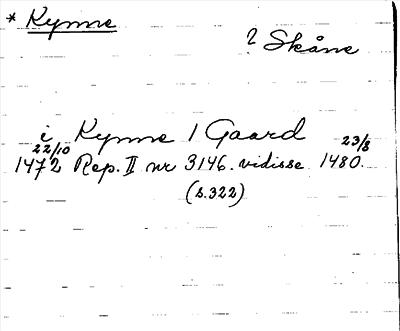 * Kynne
? Skåne
i Kynne 1 Gaard
22/10 23/8
1472 Rep. II nr 3146. vidisse 1480.
(s.322)